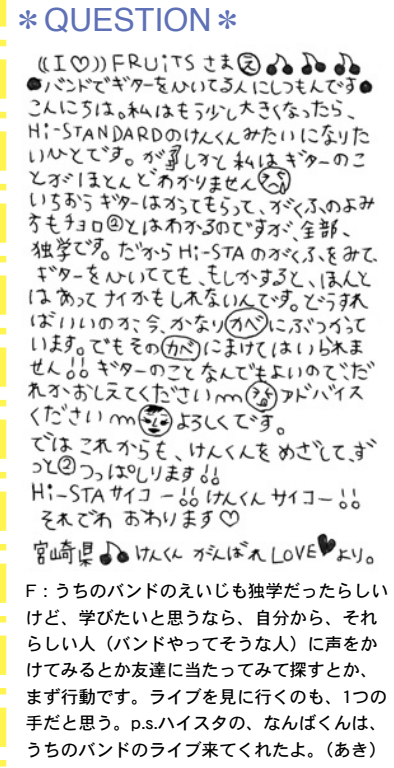 ＊QUESTION＊
((I♡))FRUiTSさまえ♪♪♪♪
●バンドでギターをひいてる人にしつもんです●
こんにちは。私はもう少し大きくなったら、
Hi-STANDARDのけんくんみたいになりた
いひとです。がしかし私はギターのこ
とがほとんどわかりません
いちおうギターはかってもらって、がくふのよみ
方もチョロ②とはわかるのですが、全部、
独学です。だからHi-STAのがくふをみて、
ギターをひいてても、もしかすると、ほんと
はあってナイかもしれないんです。どうすれ
ばいいのか、今、かなりカベにぶつかって
います。でもそのカベにまけてはいられま
せん!! ギターのことなんでもよいので、だ
れかおしえてくださいm m アドバイス
くださいm m よろしくです。
では これからも、けんくんを めざして、ず
っと②つっぱしります!!
Hi-STAサイコー!! けんくん サイコー!!
それでわ おわります♡
宮崎県♪けんくん がんばれ LOVE♥より。
F：うちのバンドのえいじも独学だったらしい
けど、学びたいと思うなら、自分から、それ
らしい人（バンドやってそうな人）に声をか
けてみるとか友達に当たってみて探すとか、
まず行動です。ライブを見に行くのも、1つの
手だと思う。p.s.ハイスタの、なんばくんは、
うちのバンドのライブ来てくれたよ。（あき）